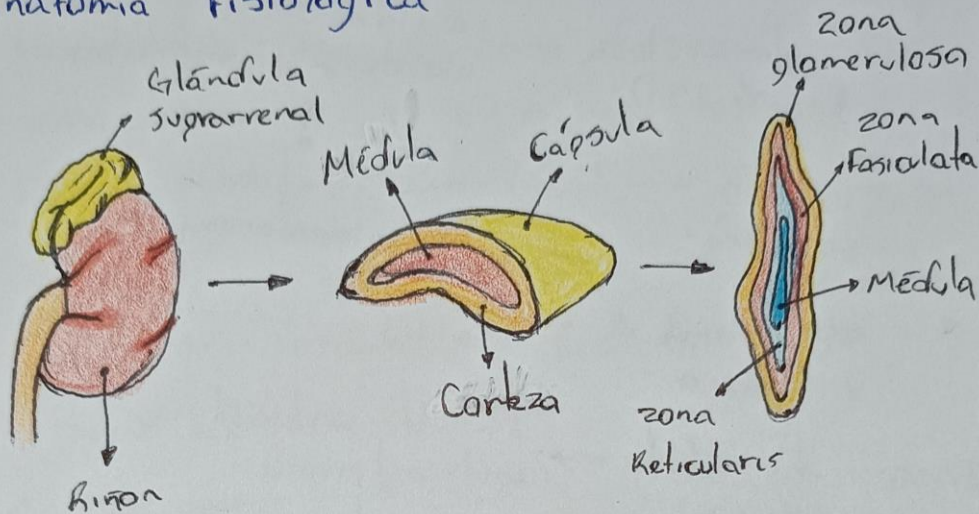 natomía Fisiológica
Glándula
suprarrenal
Riñon
Médula
Cápsula
Corteza
zona
glomerulosa
zona
Fasiculata
Médula
zona
Reticularis